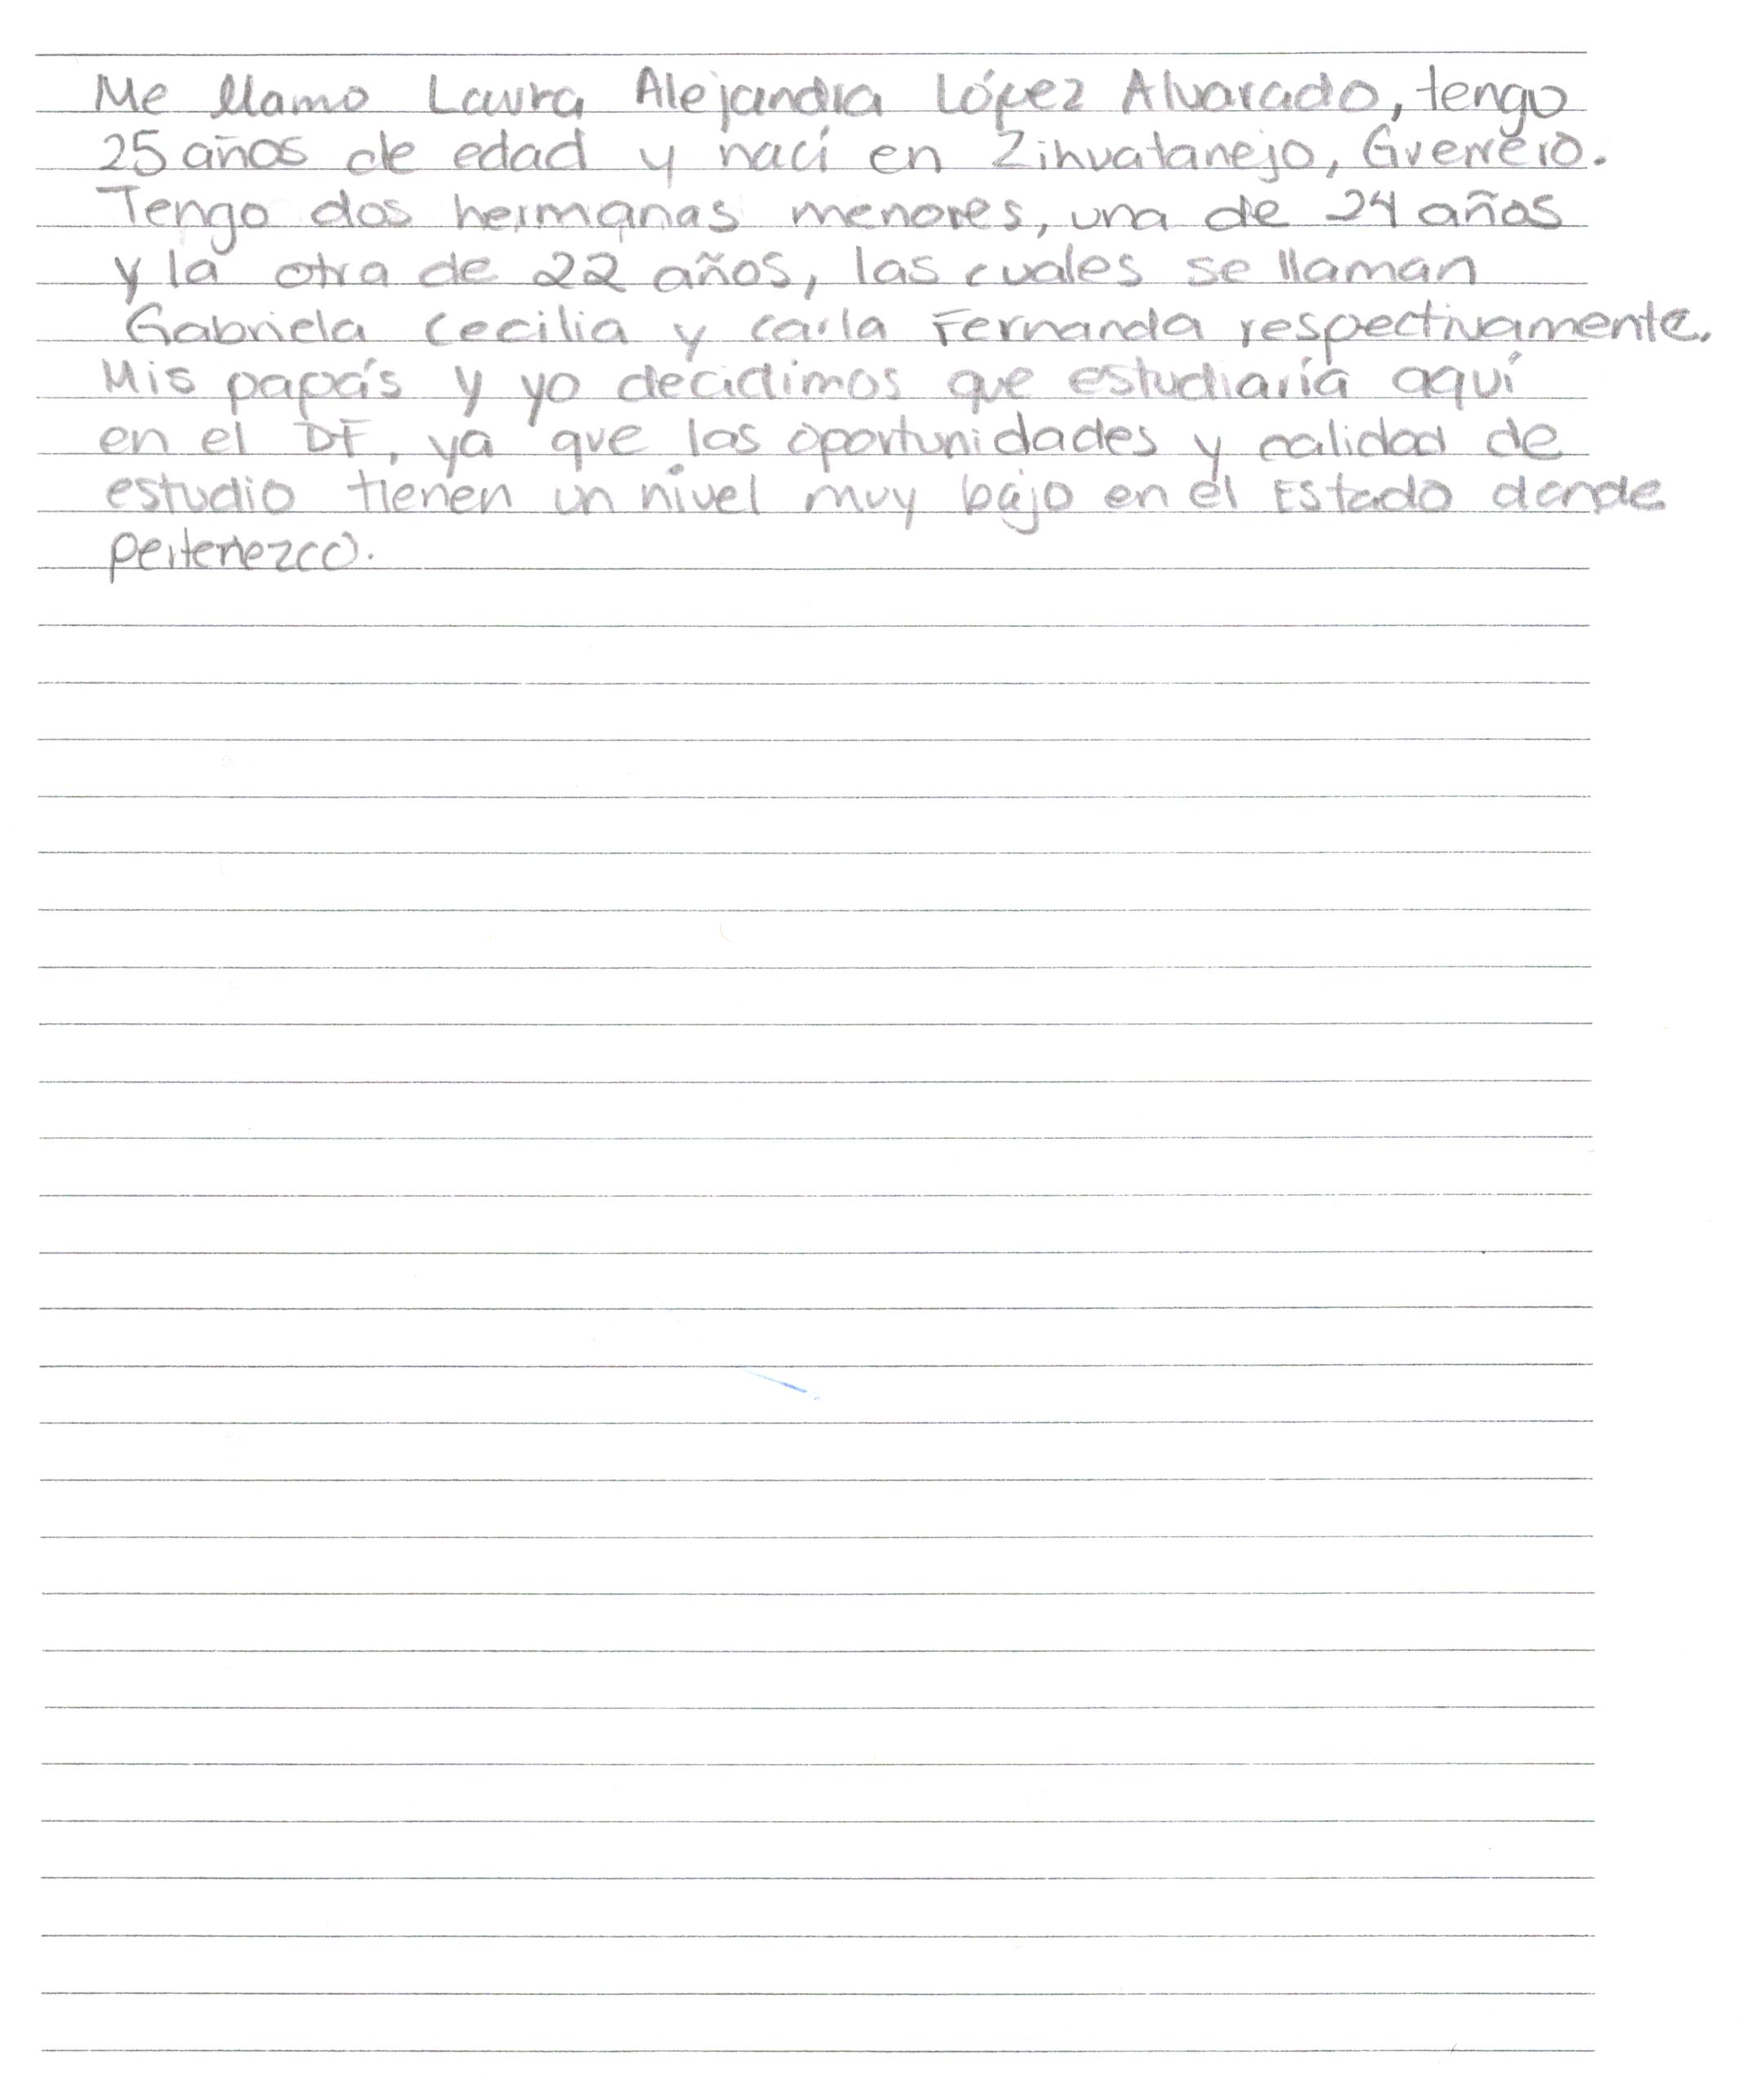 Me llamo Laura Alejandra López Alvarado, tengo
25 años de edad y nací en Zihuatanejo, Guerrero.
Tengo dos hermanas menores, una de 24 años
y la otra de 22 años, las cuales se llaman
Gabriela Cecilia y Carla Fernanda respectivamente.
Mis papás y yo decidimos que estudiaría aquí
en el DF, ya que las oportunidades y calidad de
estudio tienen un nivel muy bajo en el Estado donde
pertenezco.